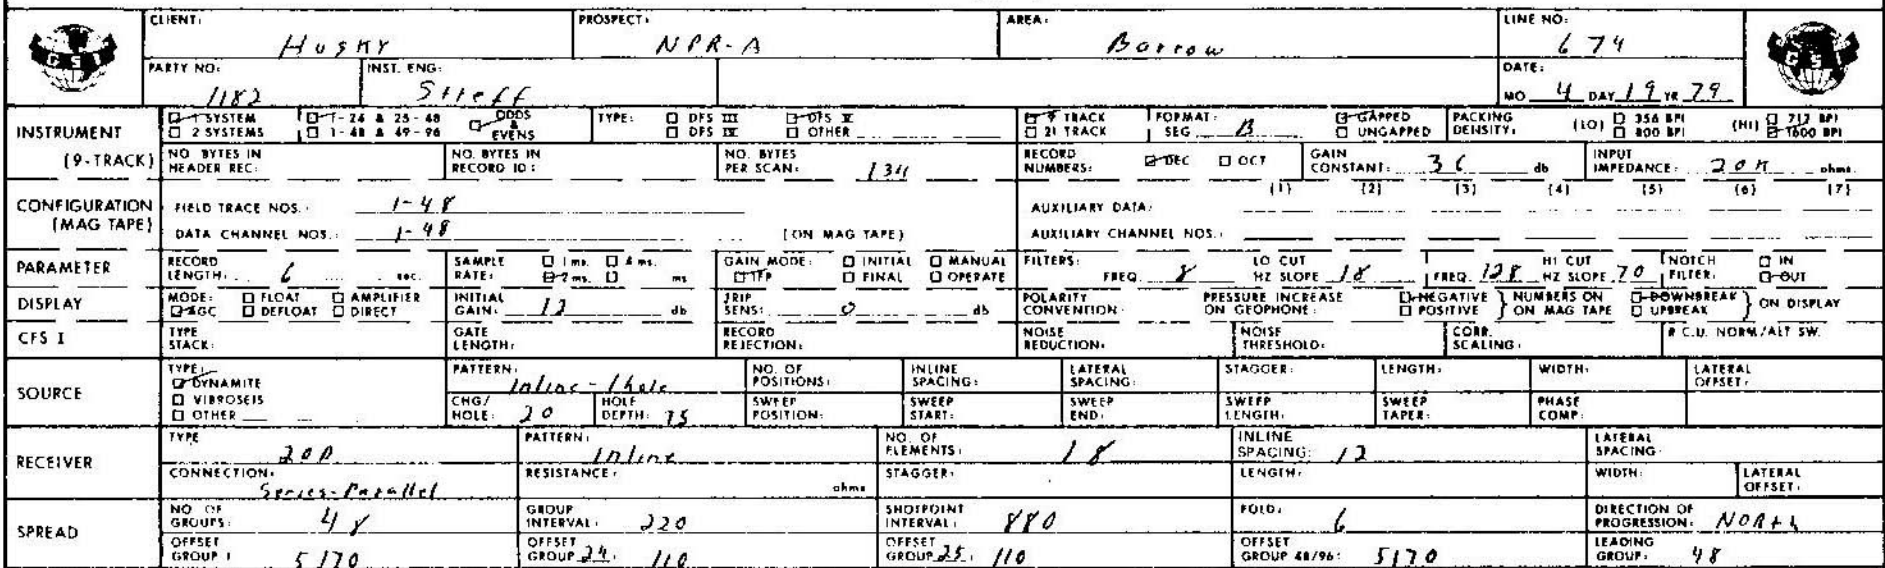 CLIENT: Husky PROSPECT: NPR-A AREA: Barrow LINE NO: 674
GSI GSI
PARTY NO: 1182 INST. ENG: DATE: MO 4 DAY 19 YR 79
INSTRUMENT (9-TRACK) 1 SYSTEM 1-24 & 25-48 ODDS & EVENS TYPE: DFS III DFS V 9 TRACK FORMAT: SEG B GAPPED PACKING DENSITY: (LO) 356 BPI (HI) 712 BPI
2 SYSTEMS 1-48 & 49-96 DFS IV OTHER 21 TRACK UNGAPPED 800 BPI 1600 BPI
NO. BYTES IN HEADER REC: NO. BYTES IN RECORD ID: NO. BYTES PER SCAN: 134 RECORD NUMBERS: DEC OCT GAIN CONSTANT: 36 db INPUT IMPEDANCE: 20K ohms
CONFIGURATION (MAG TAPE) FIELD TRACE NOS.: 1-48 AUXILIARY DATA: (1) (2) (3) (4) (5) (6) (7)
DATA CHANNEL NOS.: 1-48 (ON MAG TAPE) AUXILIARY CHANNEL NOS.:
PARAMETER RECORD LENGTH: 6 sec. SAMPLE RATE: 1 ms. 4 ms. 2 ms. ms GAIN MODE: INITIAL MANUAL IFP FINAL OPERATE FILTERS: LO CUT FREQ. 8 HZ SLOPE 18 HI CUT FREQ. 128 HZ SLOPE 70 NOTCH FILTER: IN OUT
DISPLAY MODE: FLOAT AMPLIFIER AGC DEFLOAT DIRECT INITIAL GAIN: 12 db TRIP SENS: 0 db POLARITY CONVENTION: PRESSURE INCREASE ON GEOPHONE: NEGATIVE POSITIVE NUMBERS ON ON MAG TAPE DOWNBREAK UPBREAK ON DISPLAY
CFS I TYPE STACK: GATE LENGTH: RECORD REJECTION: NOISE REDUCTION: NOISE THRESHOLD: CORR. SCALING: R.C.U. NORM/ALT SW.
SOURCE TYPE: DYNAMITE VIBROSEIS OTHER PATTERN: Inline-1hole NO. OF POSITIONS: INLINE SPACING: LATERAL SPACING: STAGGER: LENGTH: WIDTH: LATERAL OFFSET:
CHG/HOLE: 20 HOLE DEPTH: 75 SWEEP POSITION: SWEEP START: SWEEP END: SWEEP LENGTH: SWEEP TAPER: PHASE COMP:
RECEIVER TYPE 20D PATTERN: Inline NO. OF ELEMENTS: 18 INLINE SPACING: 12 LATERAL SPACING:
CONNECTION: Series-Parallel RESISTANCE: ohms STAGGER: LENGTH: WIDTH: LATERAL OFFSET:
SPREAD NO. OF GROUPS: 48 GROUP INTERVAL: 220 SHOTPOINT INTERVAL: 880 FOLD: 6 DIRECTION OF PROGRESSION: NORth
OFFSET GROUP 1 5170 OFFSET GROUP 24: 110 OFFSET GROUP 25: 110 OFFSET GROUP 48/96: 5170 LEADING GROUP: 48